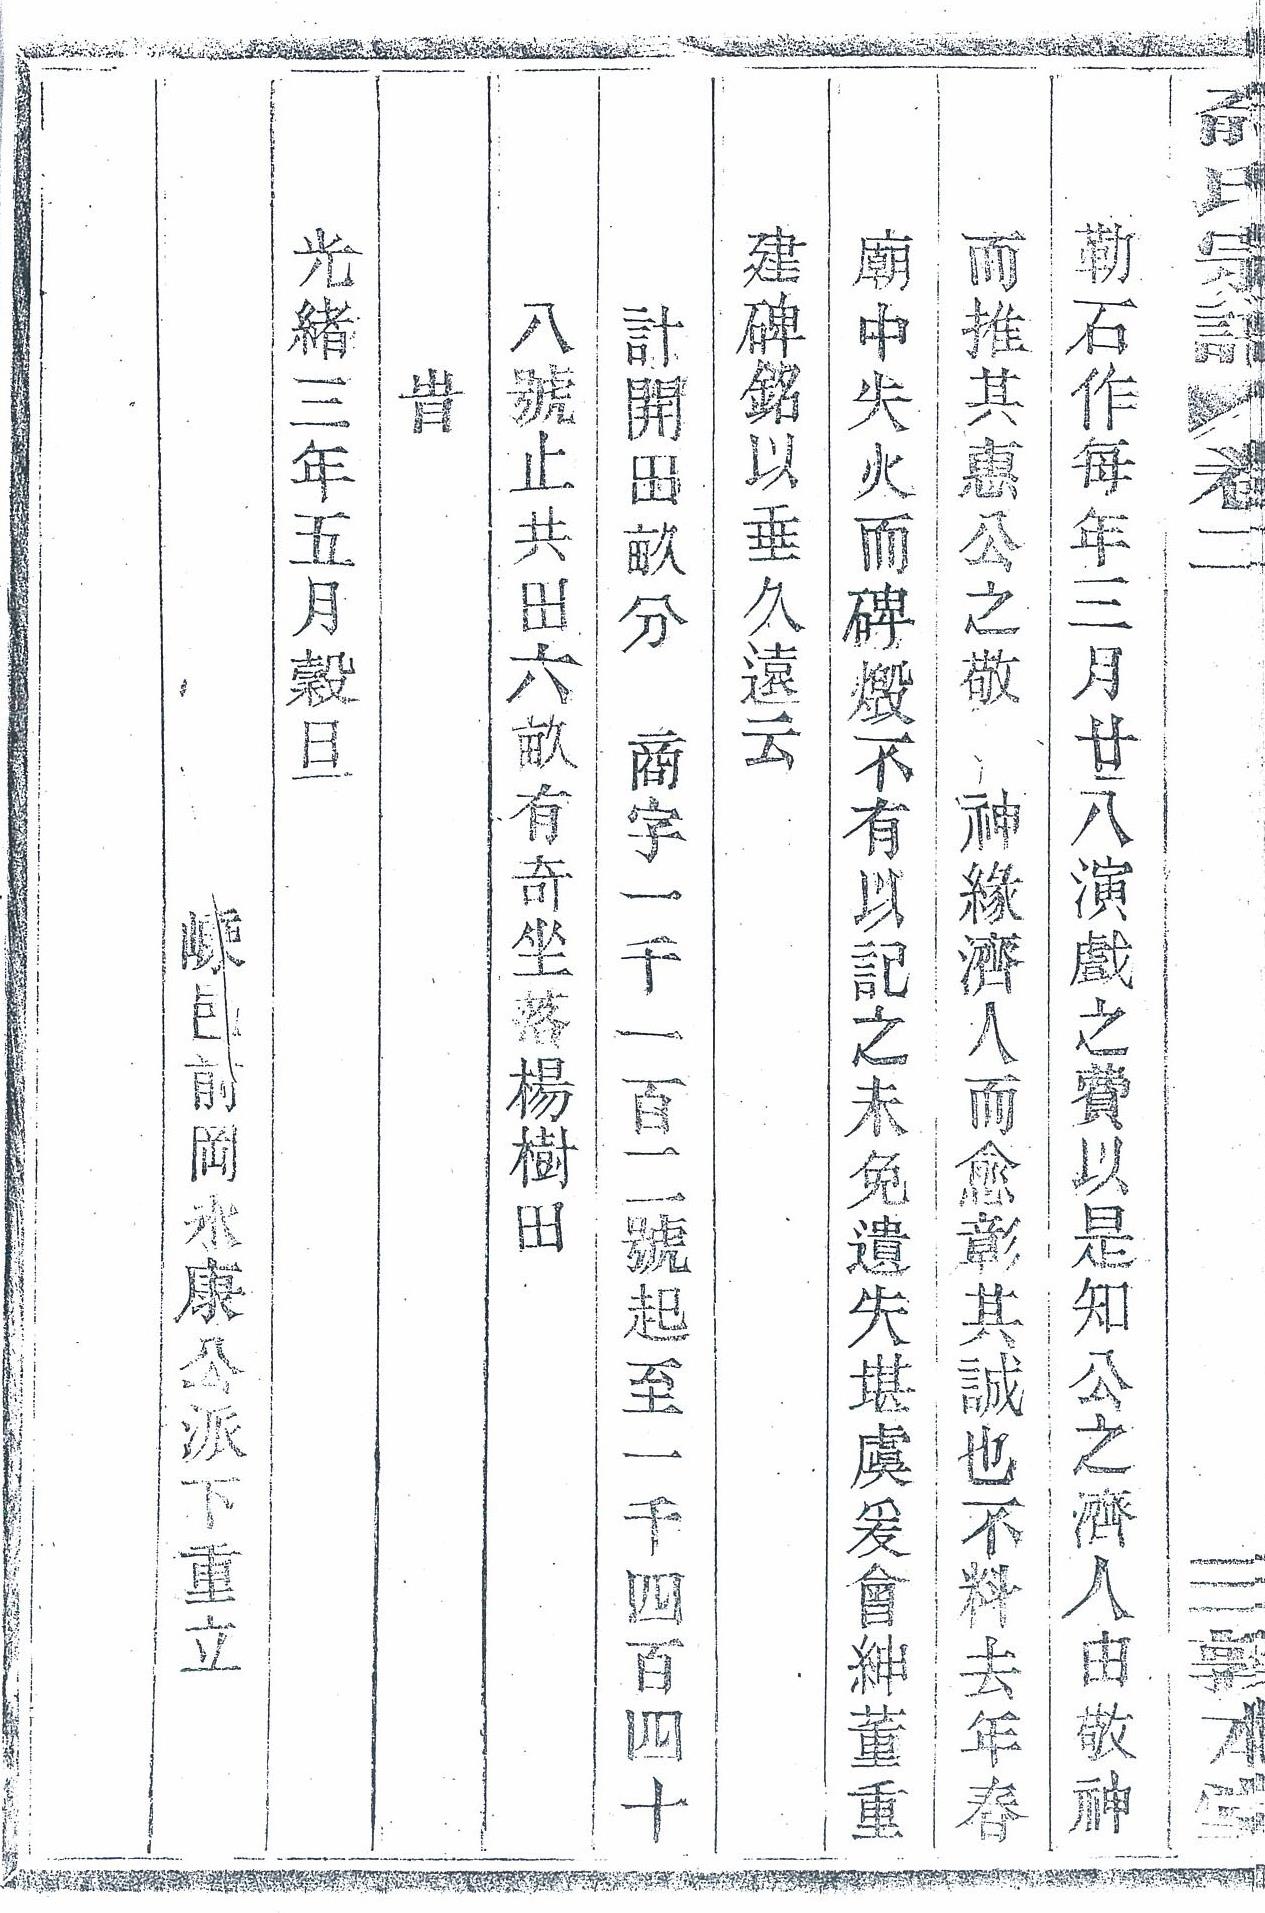 俞氏宗譜 卷二 三 敦本堂
勒石作每年三月廿八演戲之費以是知公之濟人由敬神
而推其惠公之敬 神緣濟人而愈彰其誠也不料去年春
廟中失火而碑燬不有以記之未免遺失堪虞爰會紳董重
建碑銘以垂久遠云
計開田畝分 商字一千一百二號起至一千四百四十
八號止共田六畝有奇坐落楊樹田
旹
光緒三年五月穀旦
嵊邑前岡永康公派下重立